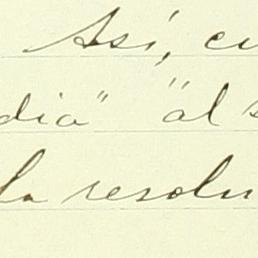 Así, cu
dia" "al s
la resolu